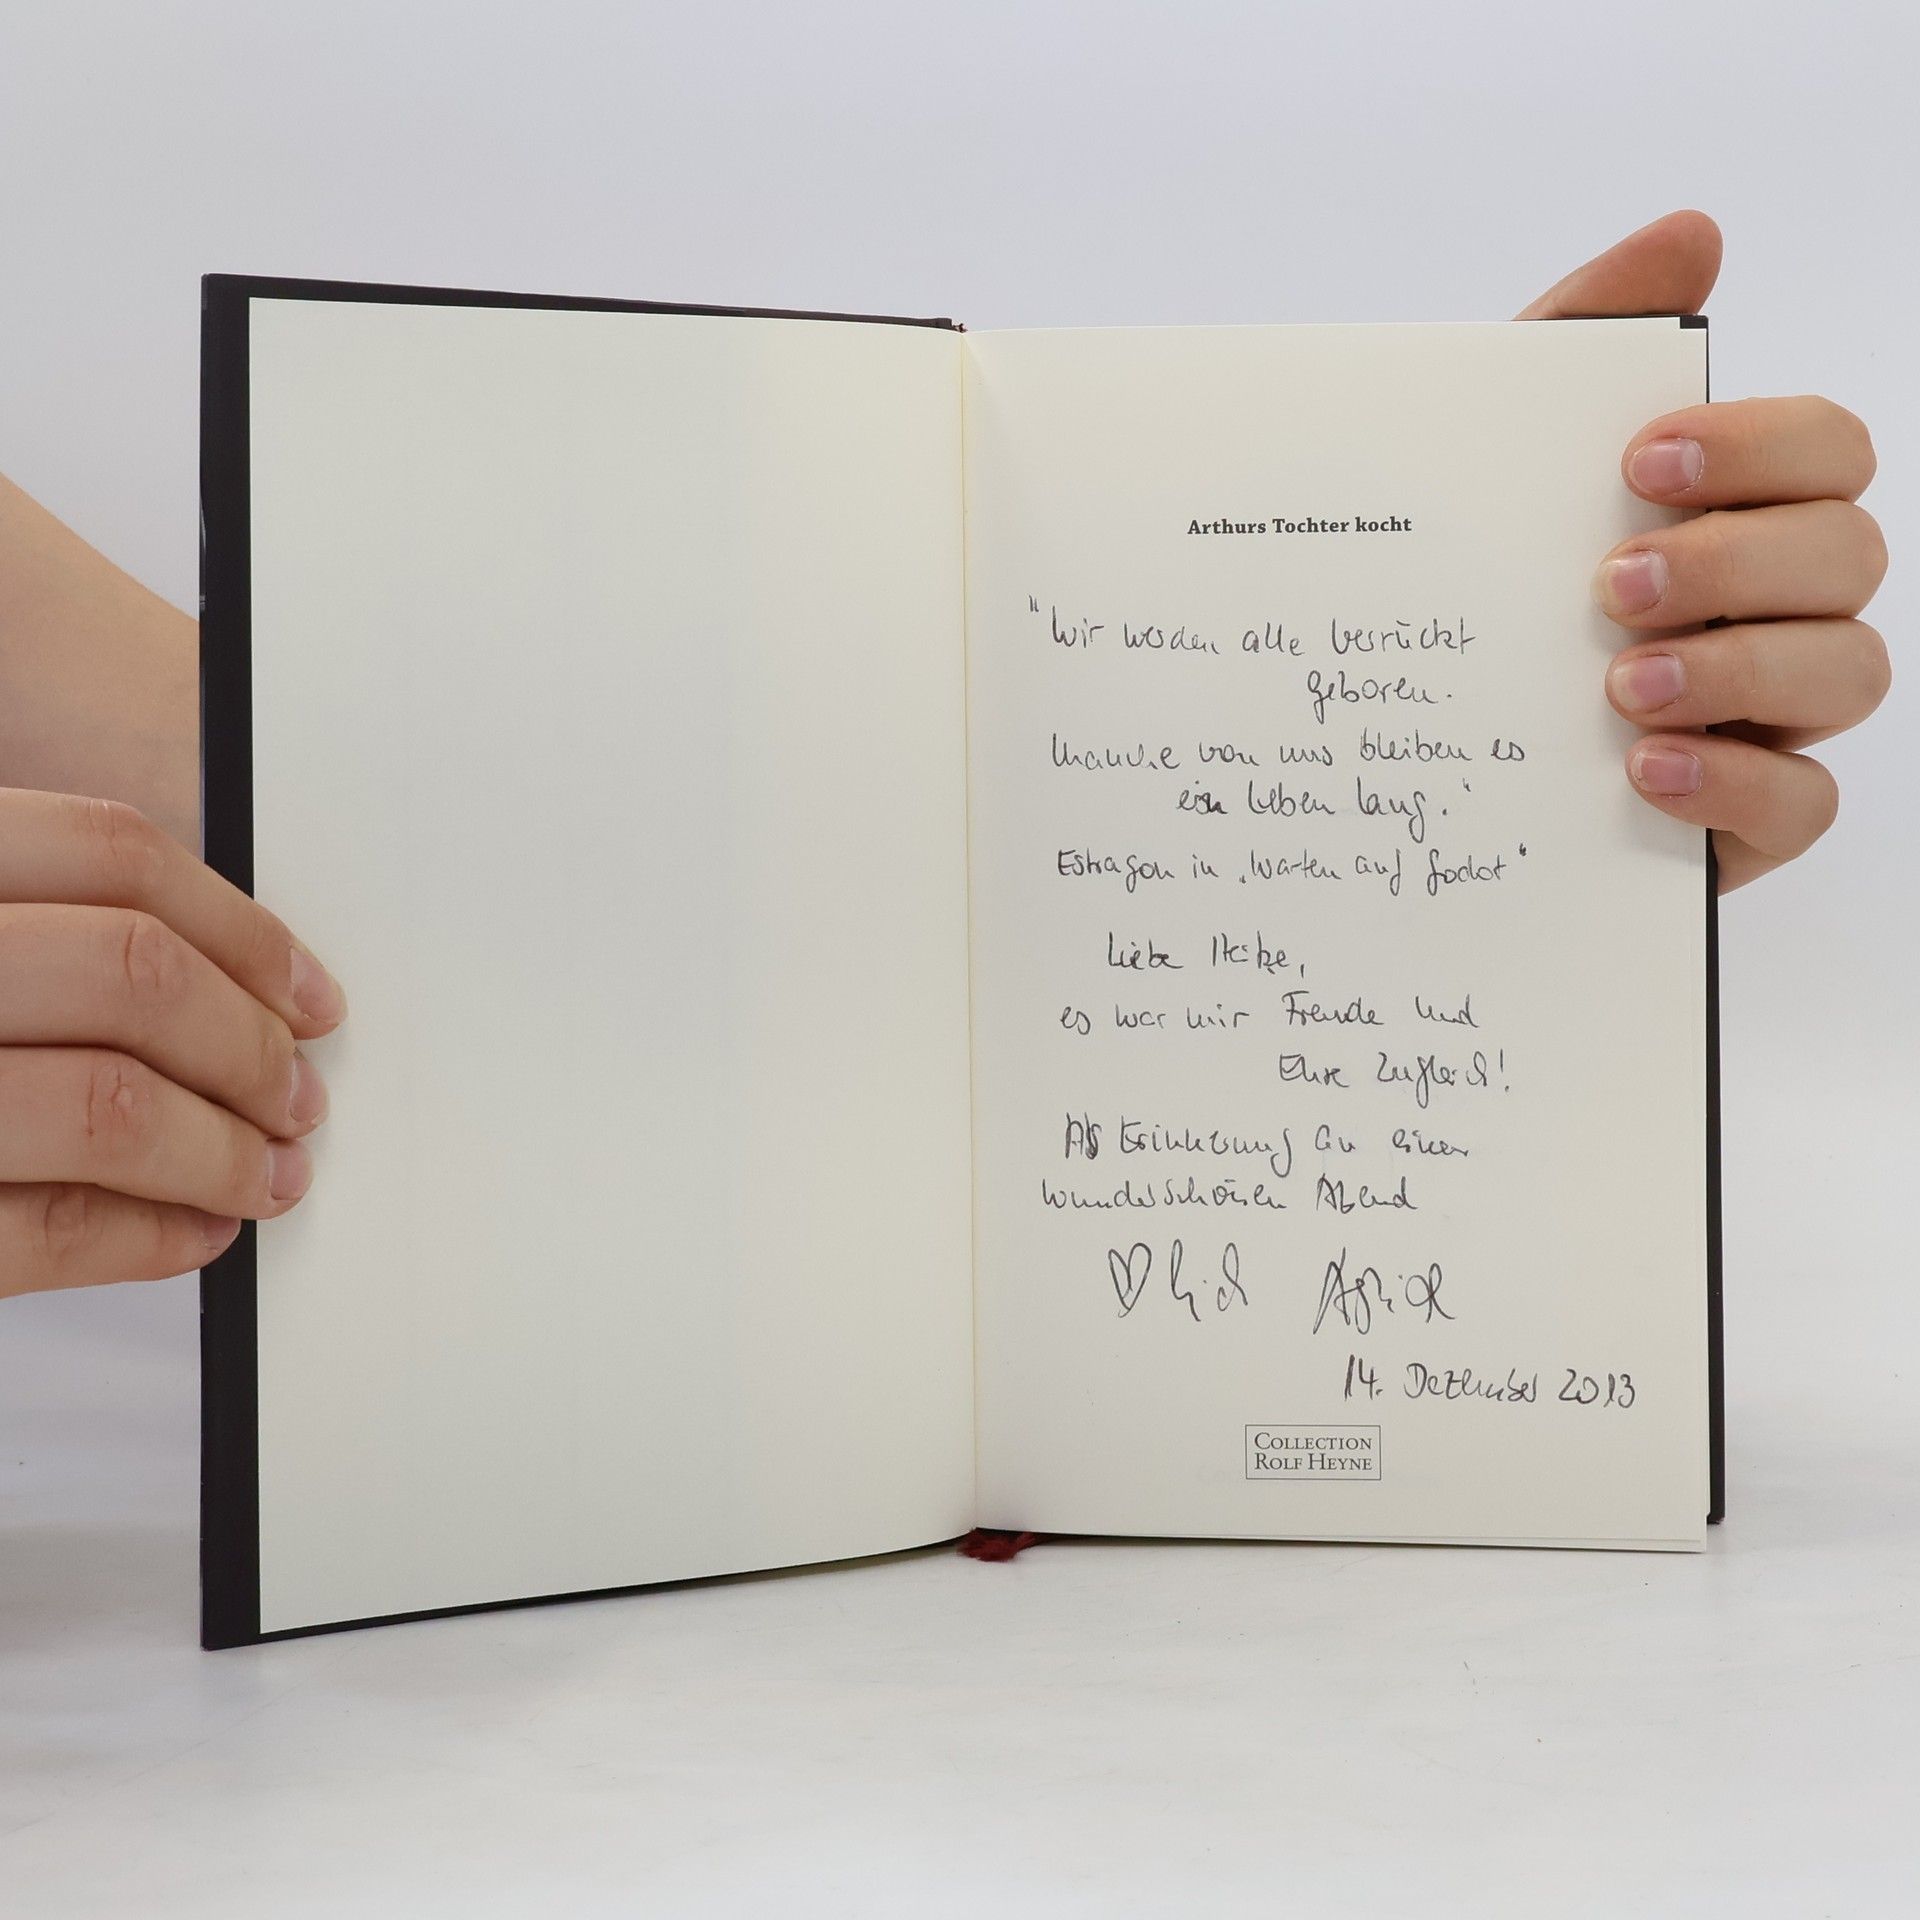 Arthurs Tochter kocht
"Wir werden alle verrückt
geboren.
Manche von uns bleiben es
ein Leben lang."
Estragon in „Warten auf Godot"
Liebe Heike,
es war mir Freude und
Ehre zugleich!
Als Erinnerung an einen
wunderschönen Abend
♡lich Astrid
14. Dezember 2013
COLLECTION
ROLF HEYNE